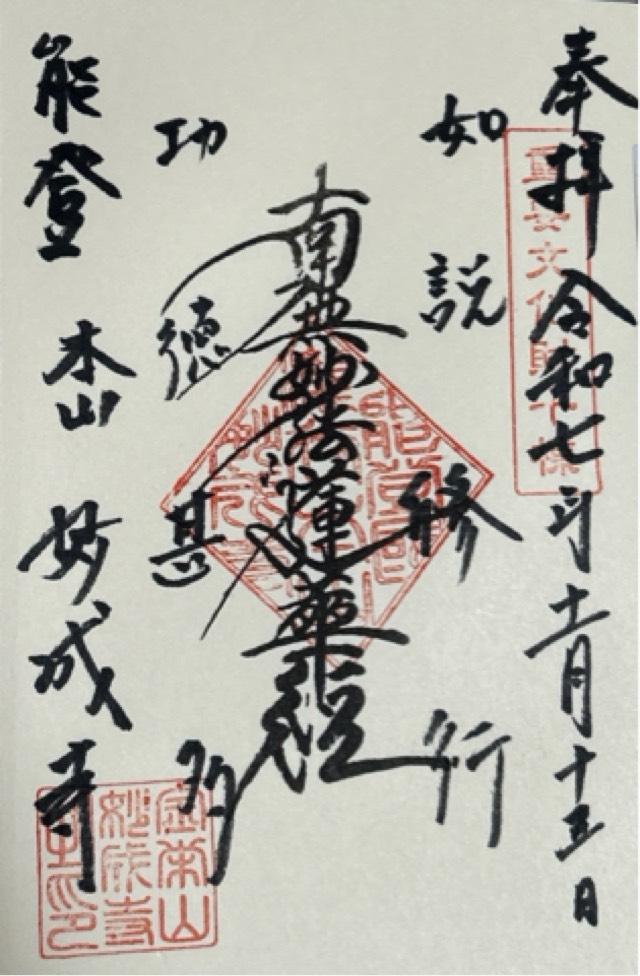 奉拝 令和七年十一月十五日
重要文化財十棟
如説修行
南無妙法蓮華経
功徳甚多
能登 本山 妙成寺
金栄山
妙成寺